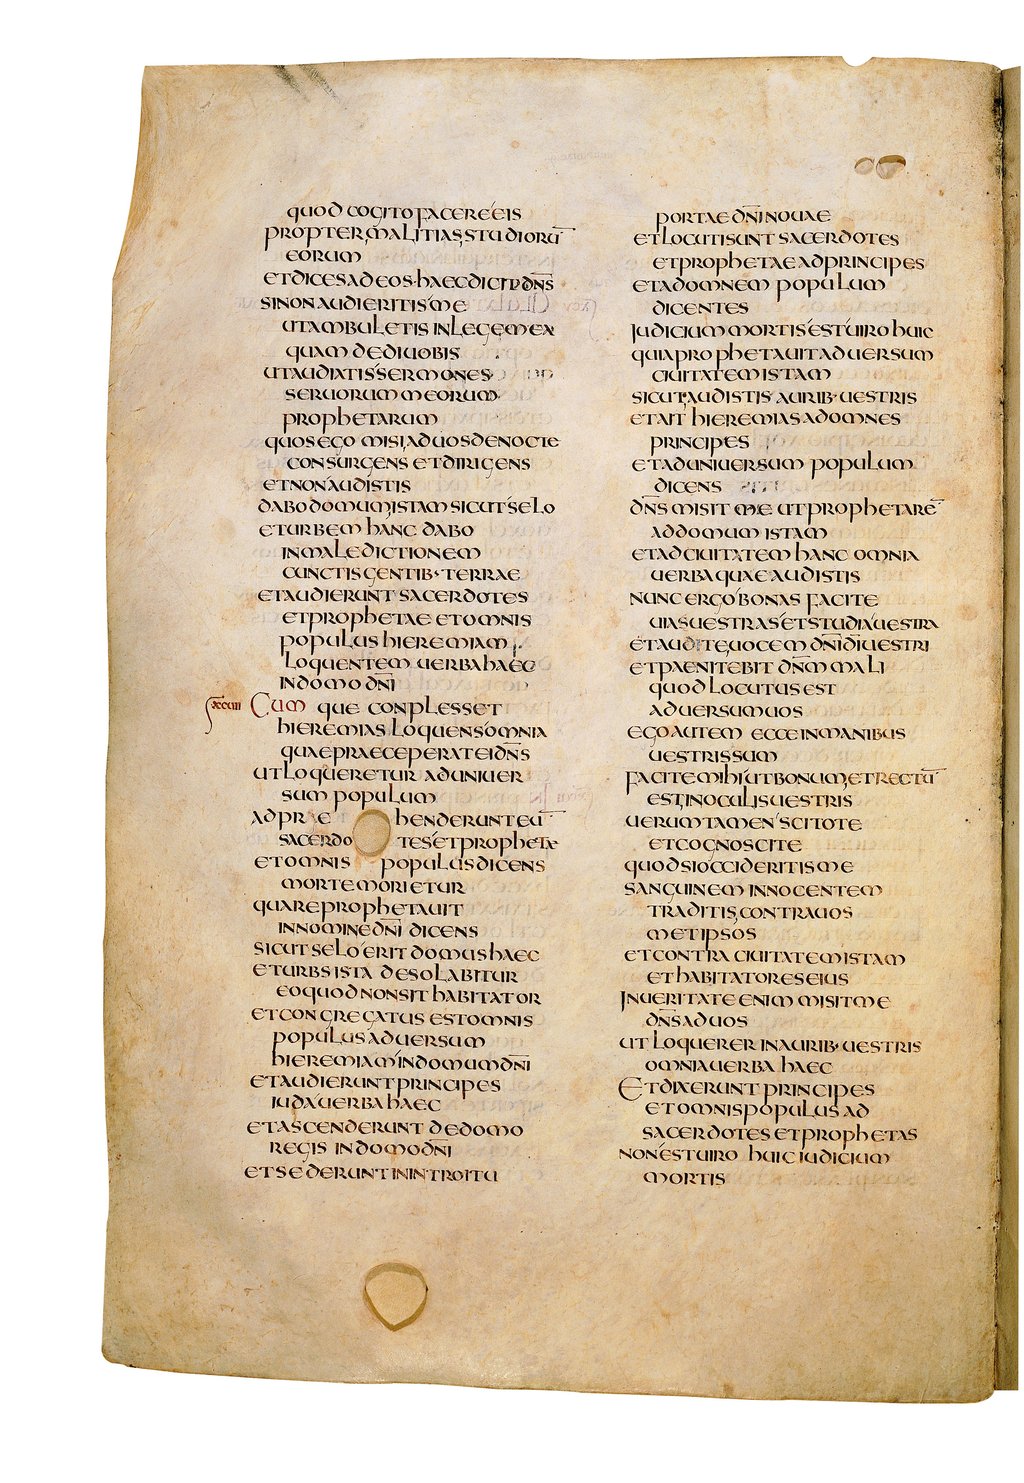 quod cogito facere eis
propter malitias studiorū
eorum
et dices ad eos haec dicit dn̄s
si non audieritis me
ut ambuletis in lege mea
quam dedi uobis
ut audiatis sermones
seruorum meorum
prophetarum
quos ego misi ad uos de nocte
consurgens et dirigens
et non audistis
dabo domum istam sicut selo
et urbem hanc dabo
in maledictionem
cunctis gentib· terrae
et audierunt sacerdotes
et prophetae et omnis
populus hieremiam
loquentem uerba haec
in domo dn̄i
xxxuiii Cumque conplesset
hieremias loquens omnia
quae praeceperat ei dn̄s
ut loqueretur ad uniuer
sum populum
adprae henderunt eū
sacerdo tes et prophetae
et omnis populus dicens
morte morietur
quare prophetauit
in nomine dn̄i dicens
sicut selo erit domus haec
et urbs ista desolabitur
eo quod non sit habitator
et congregatus est omnis
populus aduersum
hieremiam in domum dn̄i
et audierunt principes
iuda uerba haec
et ascenderunt de domo
regis in domo dn̄i
et sederunt in introitu
portae dn̄i nouae
et locuti sunt sacerdotes
et prophetae ad principes
et ad omnem populum
dicentes
iudicium mortis est uiro huic
quia prophetauit aduersum
ciuitatem istam
sicut audistis aurib· uestris
et ait hieremias ad omnes
principes
et ad uniuersum populum
dicens
dn̄s misit me ut prophetarē
ad domum istam
et ad ciuitatem hanc omnia
uerba quae audistis
nunc ergo bonas facite
uias uestras et studia uestra
et audite uocem dn̄i dī uestri
et paenitebit dn̄m mali
quod locutus est
aduersum uos
ego autem ecce in manibus
uestris sum
facite mihi ut bonum et rectū
est in oculis uestris
uerumtamen scitote
et cognoscite
quod si occideritis me
sanguinem innocentem
traditis contra uos
metipsos
et contra ciuitatem istam
et habitatores eius
in ueritate enim misit me
dn̄s ad uos
ut loquerer in aurib· uestris
omnia uerba haec
Et dixerunt principes
et omnis populus ad
sacerdotes et prophetas
non est uiro huic iudicium
mortis